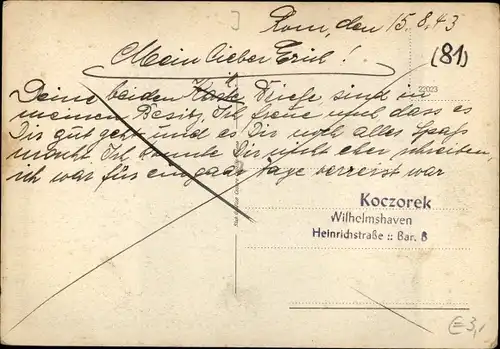 Rom, den 15.8.43
Mein lieber Erich!
(81)
22023
Deine beiden Karte Briefe sind in
meinen Besitz. Ich freue mich dass es
Dir gut geht und es Dir noch alles Spaß
macht. Ich konnte Dir nicht eher schreiben,
ich war für ein paar Tage verreist war
Koczorek
Wilhelmshaven
Heinrichstraße :: Bar. 8
E 3,